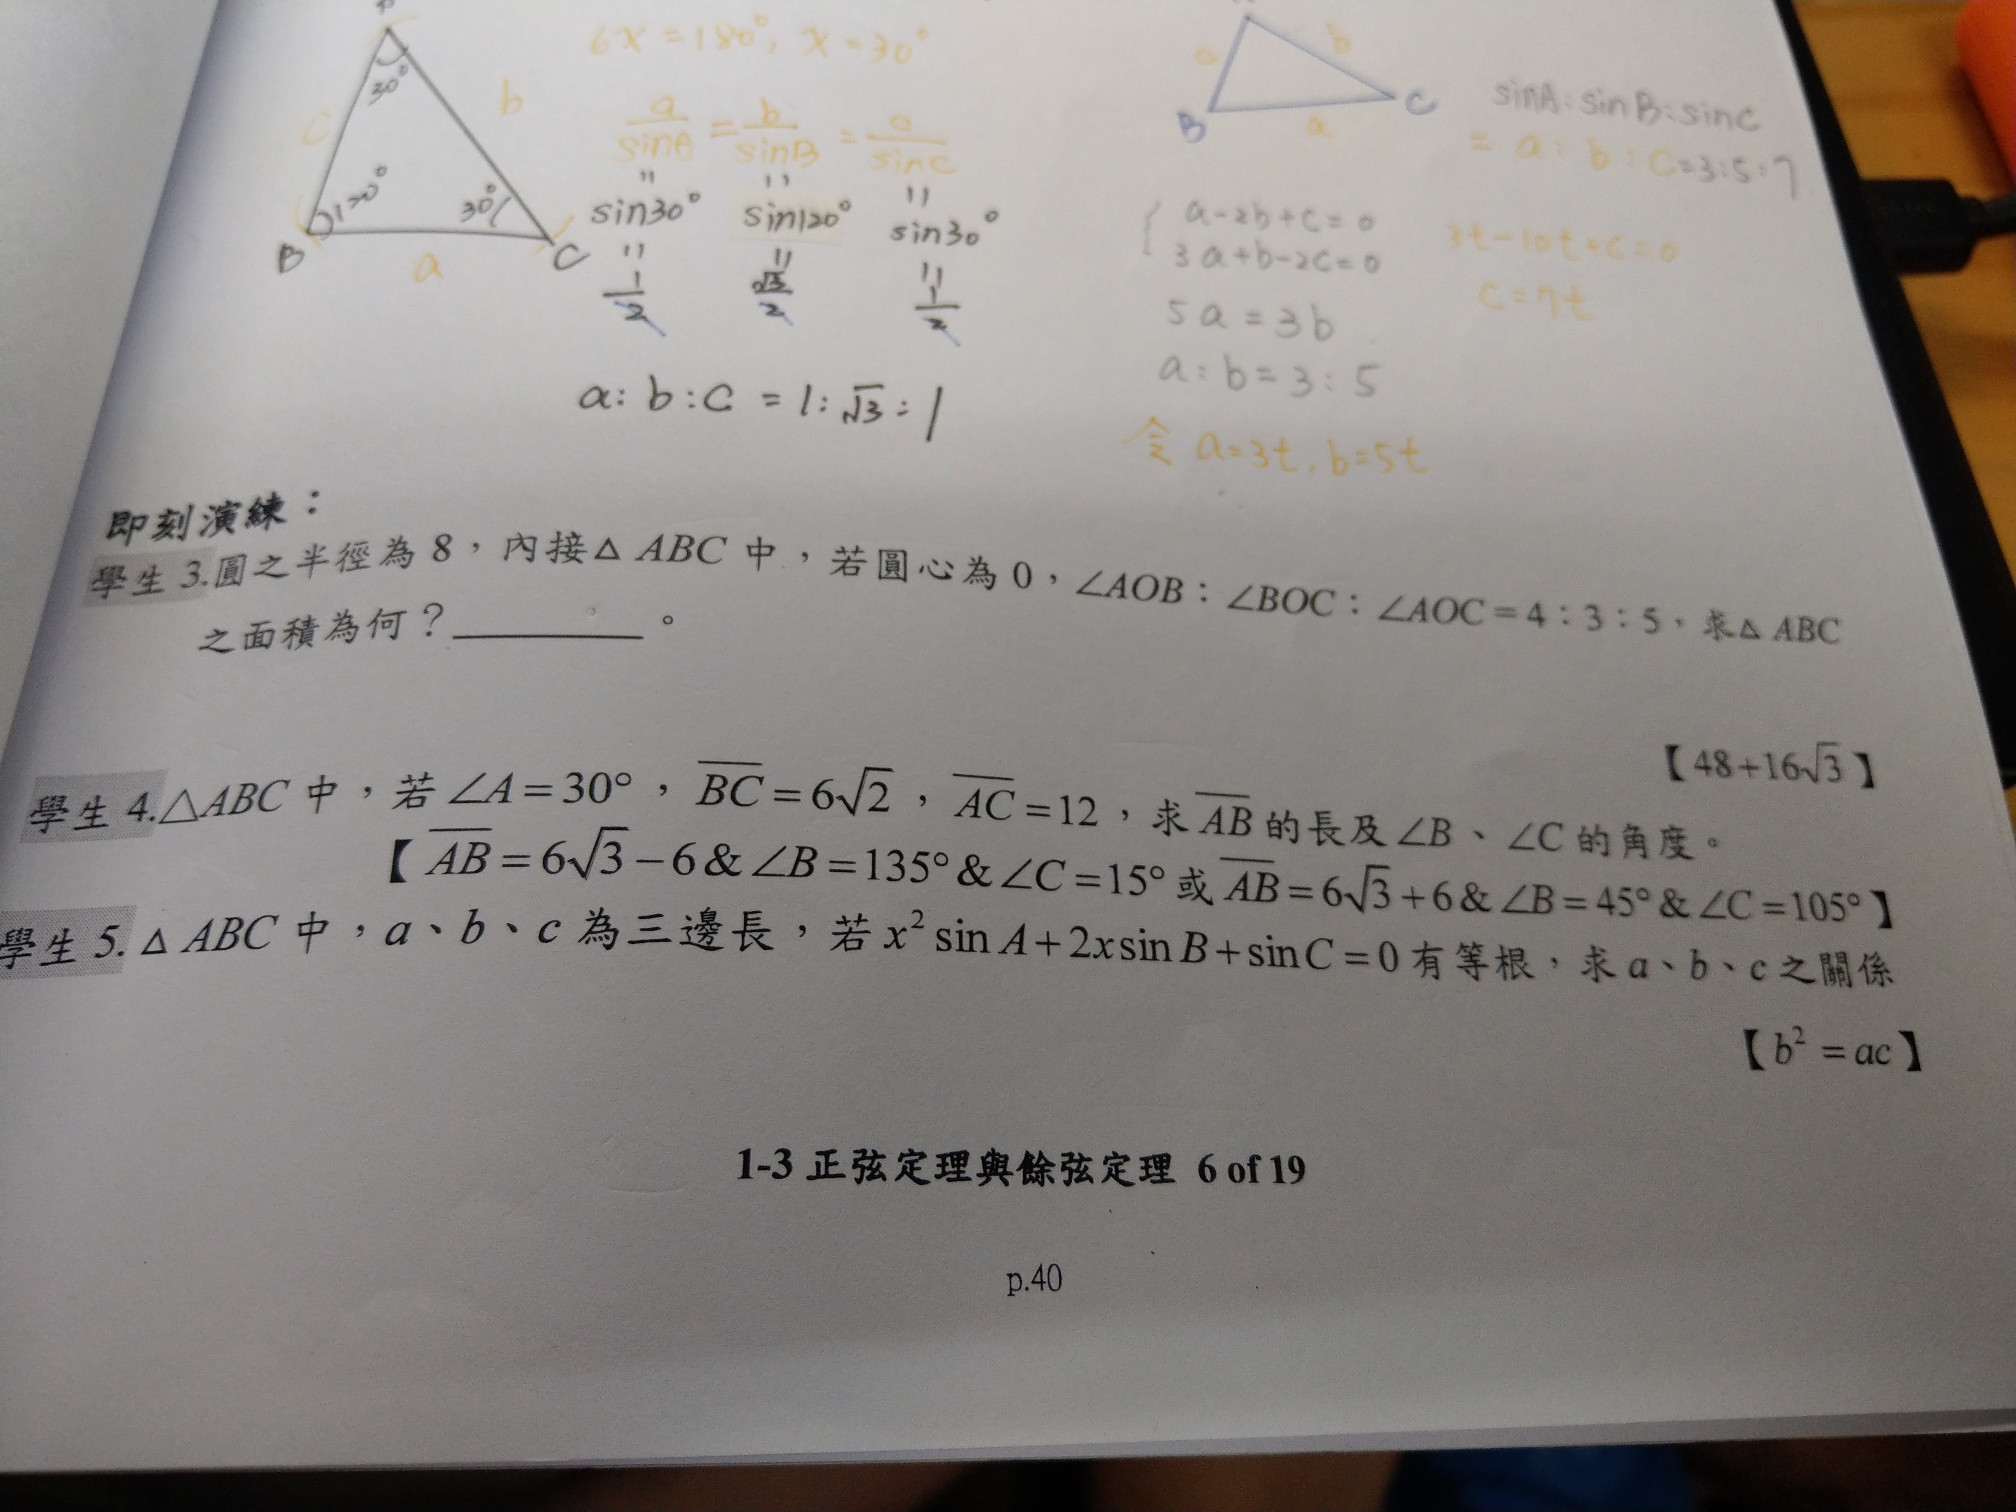 30°
c
b
120°
30°
B
a
C
6x=180°, x=30°
a/sinA = b/sinB = c/sinC
" " "
sin30° sin120° sin30°
" " "
1/2 √3/2 1/2
a:b:c = 1:√3:1
b
B
a
C
sinA:sinB:sinC
= a:b:c=3:5:7
{ a-2b+c=0
3a+b-2c=0
5a=3b
a:b=3:5
令 a=3t, b=5t
3t-10t+c=0
c=7t
即刻演練：
學生 3.圓之半徑為 8，內接△ ABC 中，若圓心為 0，∠AOB：∠BOC：∠AOC=4：3：5，求△ ABC
之面積為何？________。
【48+16√3】
學生 4.△ABC 中，若 ∠A=30°， \overline{BC}=6√2， \overline{AC}=12，求 \overline{AB} 的長及∠B、∠C 的角度。
【 \overline{AB}=6√3−6 & ∠B=135° & ∠C=15° 或 \overline{AB}=6√3+6 & ∠B=45° & ∠C=105°】
學生 5. △ ABC 中，a、b、c 為三邊長，若 x² sin A+2x sin B+sin C=0 有等根，求 a、b、c 之關係
【b² = ac】
1-3 正弦定理與餘弦定理 6 of 19
p.40